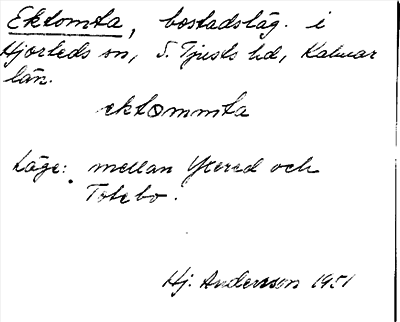 Ektomta, bostadsläg. i
Hjorteds sn, S. Tjusts hd, Kalmar
län.
ektommta
Läge: mellan Ytered och
Totebo.
Hj. Andersson 1951